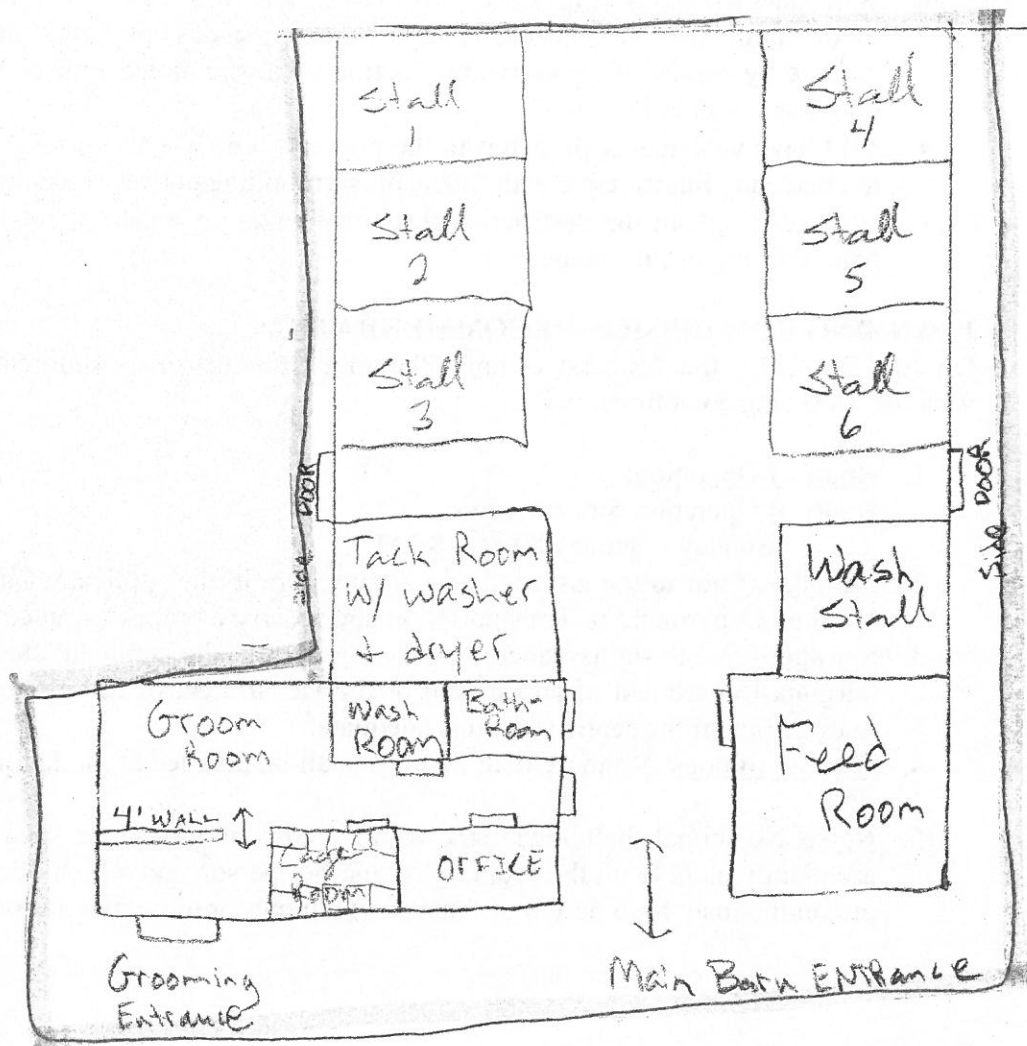 Stall
1
Stall
4
Stall
2
Stall
5
Stall
3
Stall
6
Side DOOR
Side DOOR
Tack Room
w/ washer
+ dryer
Wash
Stall
Groom
Room
Wash
Room
Bath-
Room
Feed
Room
4' WALL
Cage
Room
OFFICE
Grooming
Entrance
Main Barn ENTRANCE